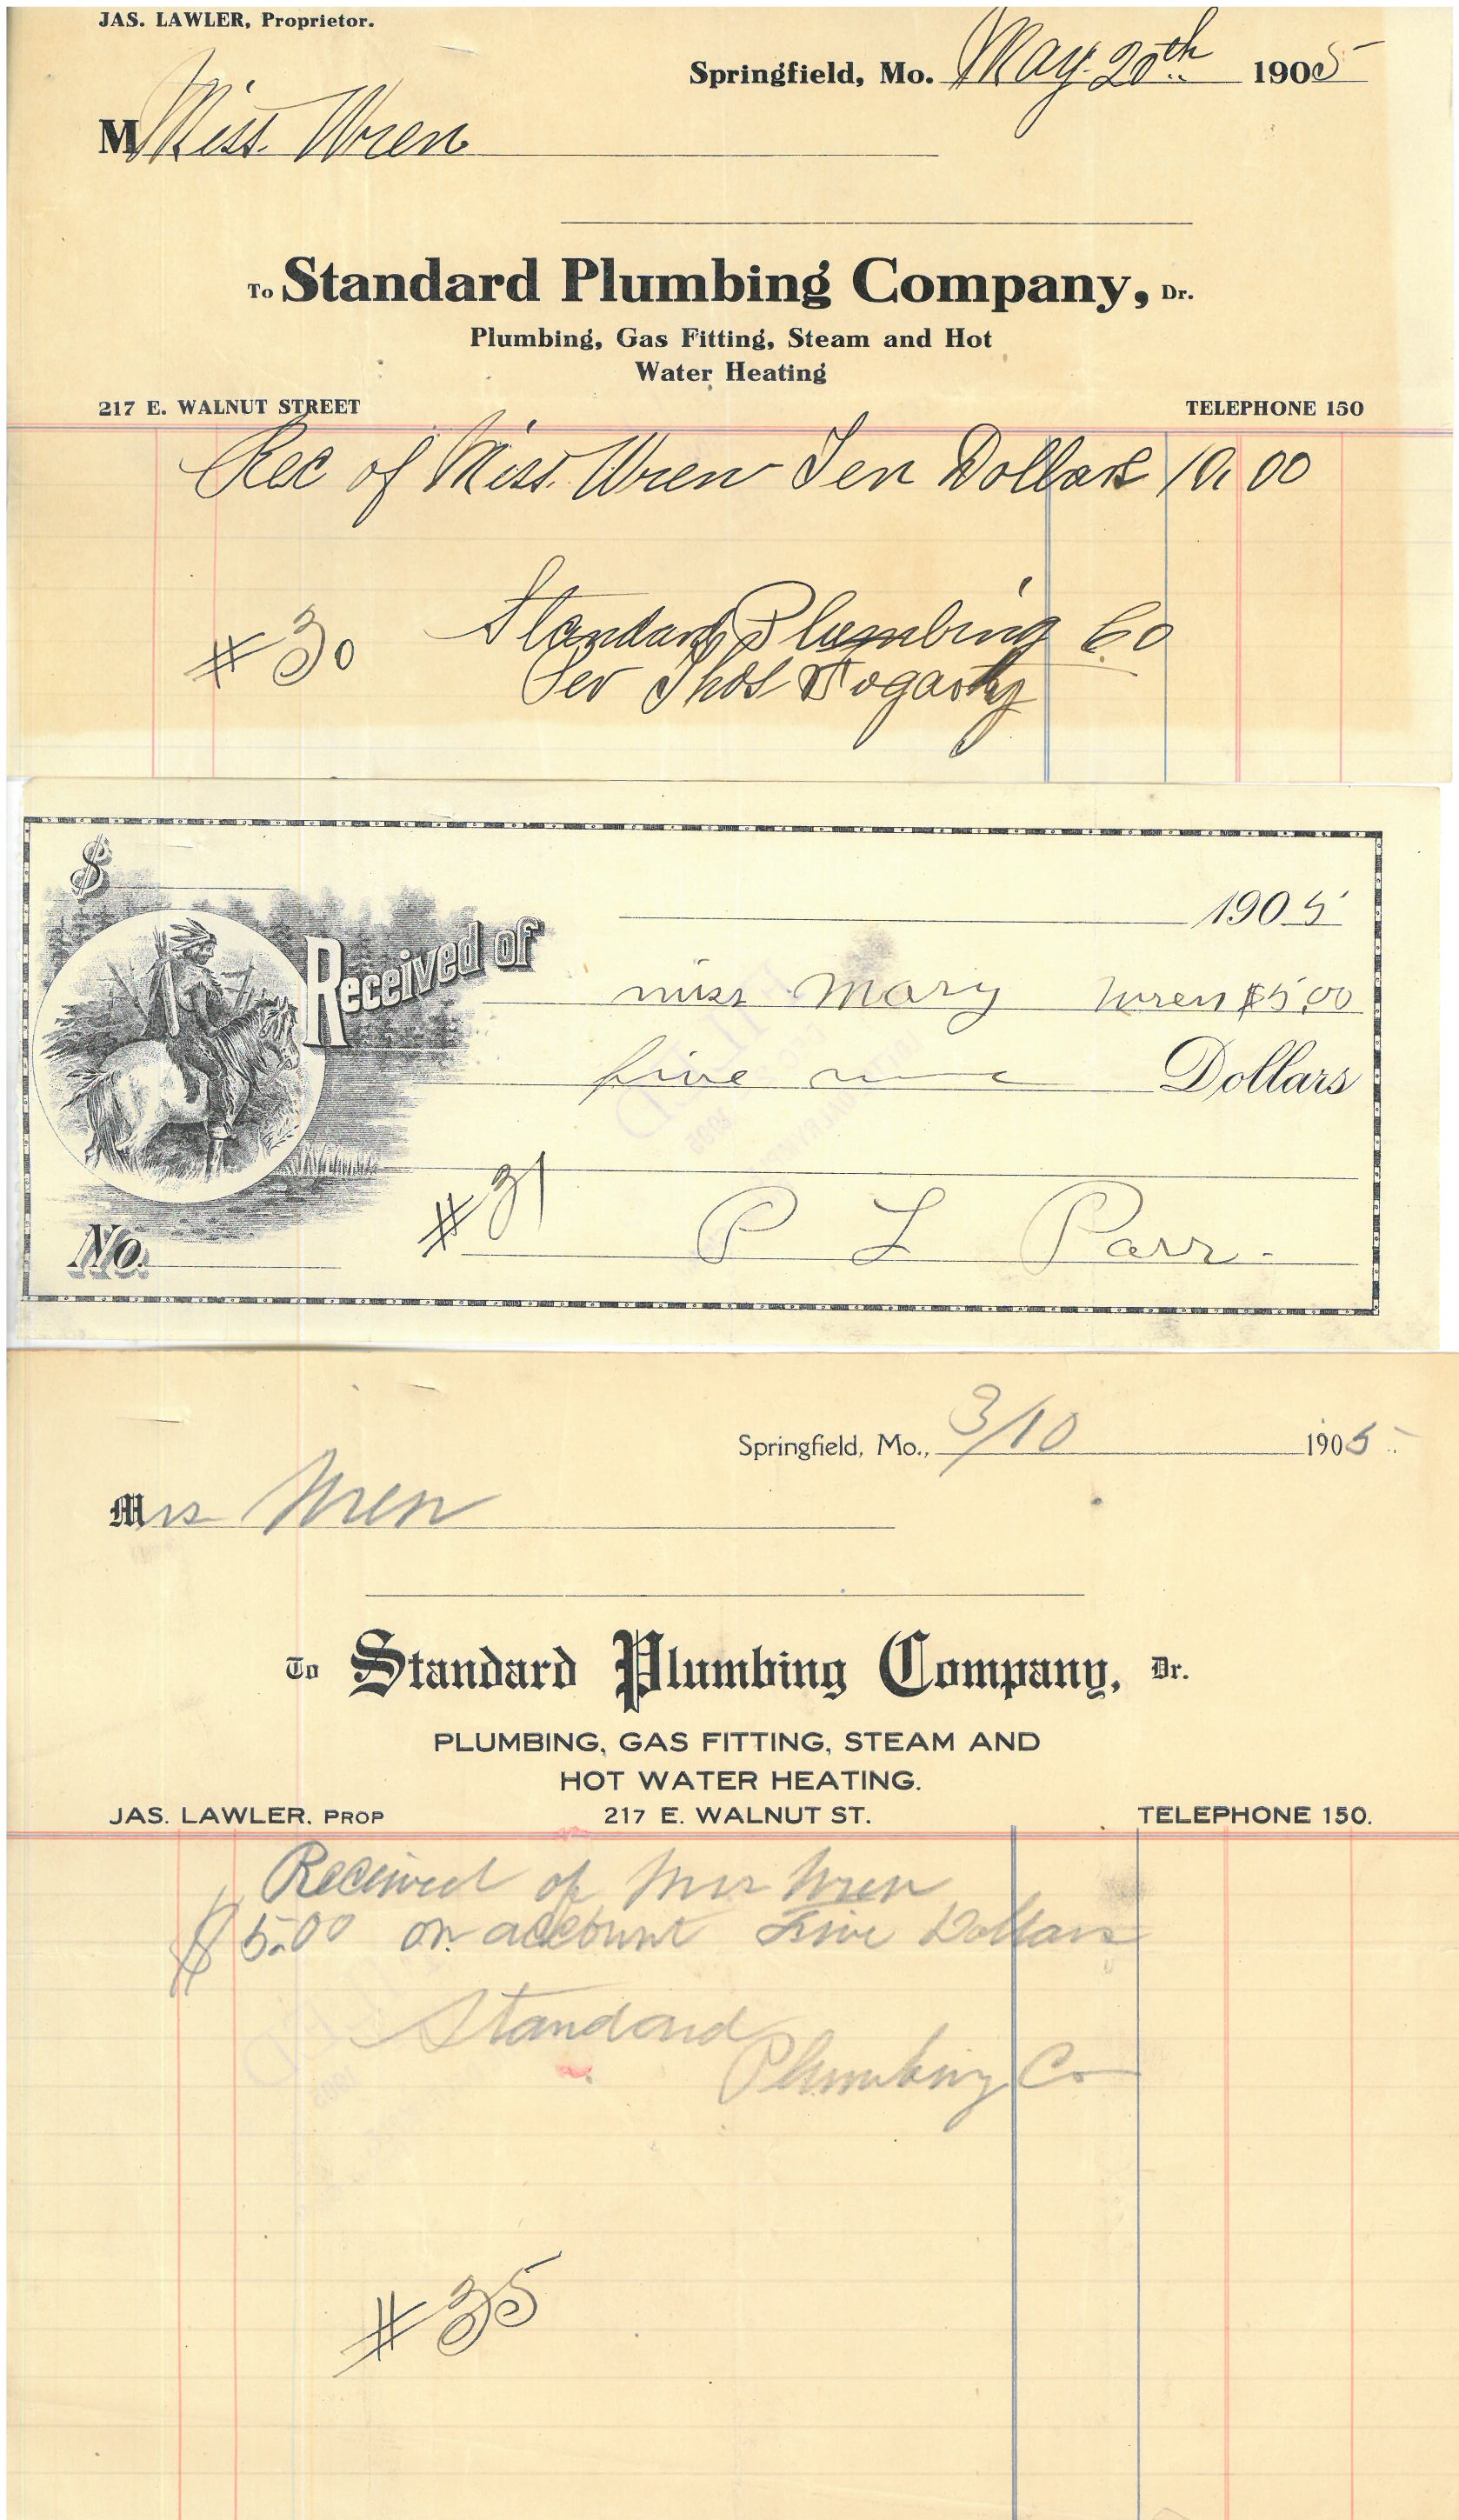 JAS. LAWLER, Proprietor.
Springfield, Mo. May. 20th 1905
M Miss. Wren
To Standard Plumbing Company, Dr.
Plumbing, Gas Fitting, Steam and Hot
Water Heating
217 E. WALNUT STREET TELEPHONE 150
Rec of Miss. Wren Ten Dollars 10.00
Standard Plumbing Co
# 30
Per Thos Fogarty
$
1905
Received of
miss Mary Wren $5.00
five Dollars
# 31
P L Parr.
No.
Springfield, Mo., 3/10 1905
Mrs Wren
To Standard Plumbing Company, Dr.
PLUMBING, GAS FITTING, STEAM AND
HOT WATER HEATING.
JAS. LAWLER, PROP 217 E. WALNUT ST. TELEPHONE 150.
Received of Mrs Wren
$5.00 on account Five Dollars
Standard
Plumbing Co
# 35